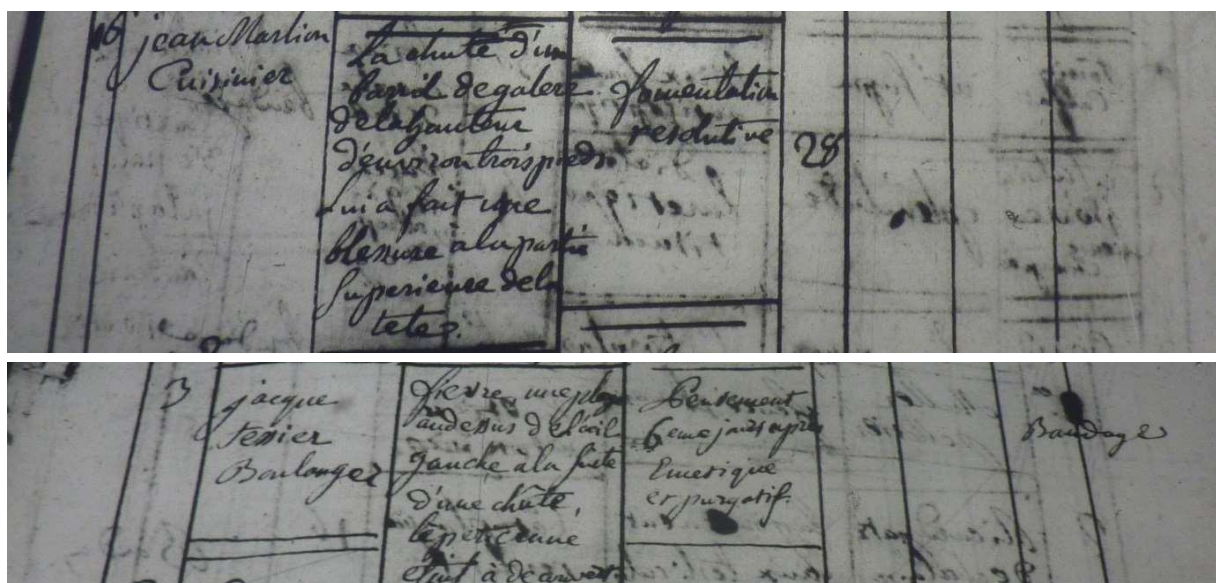 16 jean Marlion
Cuisinier
La chute d'un
barril de galere
de la hauteur
d'environ trois pieds
lui a fait une
blessure a la partie
superieure de la
tete.
fomentation
resolutive
28
3 jacque
Tessier
Boulanger
fievre, une playe
audessus de l'oeil
gauche à la suite
d'une chûte,
le pericrane
etait à decouvert
Pensement
6eme jour après
Emetique
et purgatif.
Bandage